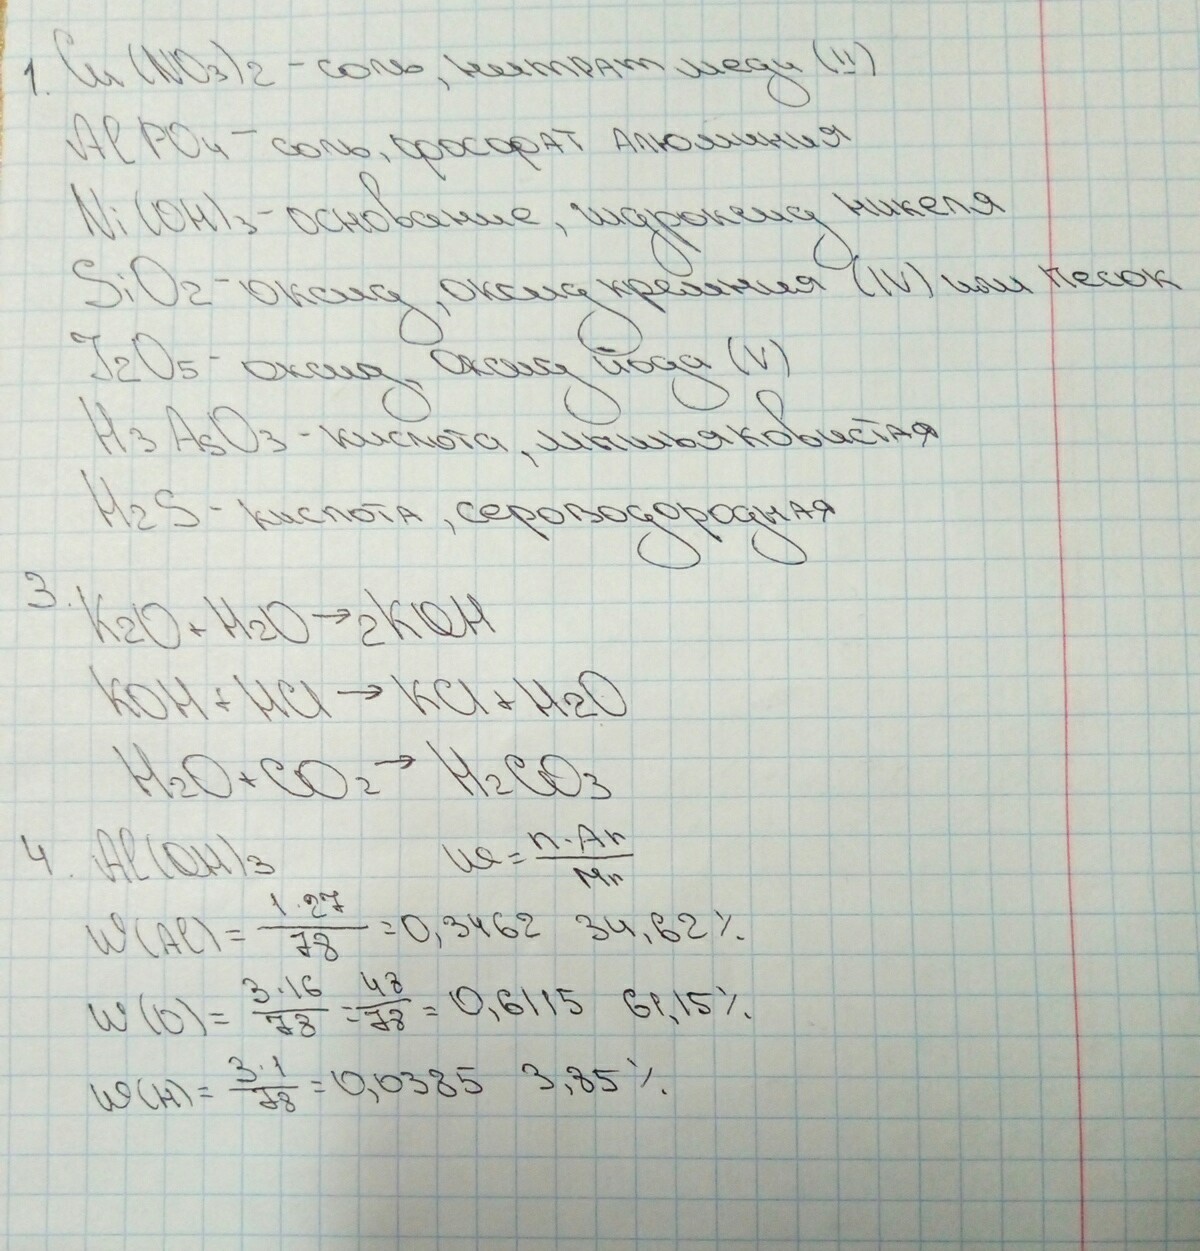 1. Cu(NO3)2 - соль, нитрат меди (II)
AlPO4 - соль, фосфат алюминия
Ni(OH)3 - основание, гидроксид никеля
SiO2 - оксид, оксид кремния (IV) или песок
I2O5 - оксид, оксид йода (V)
H3AsO3 - кислота, мышьяковистая
H2S - кислота, сероводородная
3. K2O + H2O → 2KOH
KOH + HCl → KCl + H2O
H2O + CO2 → H2CO3
4. Al(OH)3 w = n·Ar / Mr
w(Al) = 1·27 / 78 = 0,3462 34,62%
w(O) = 3·16 / 78 = 48 / 78 = 0,6115 61,15%
w(H) = 3·1 / 78 = 0,0385 3,85%